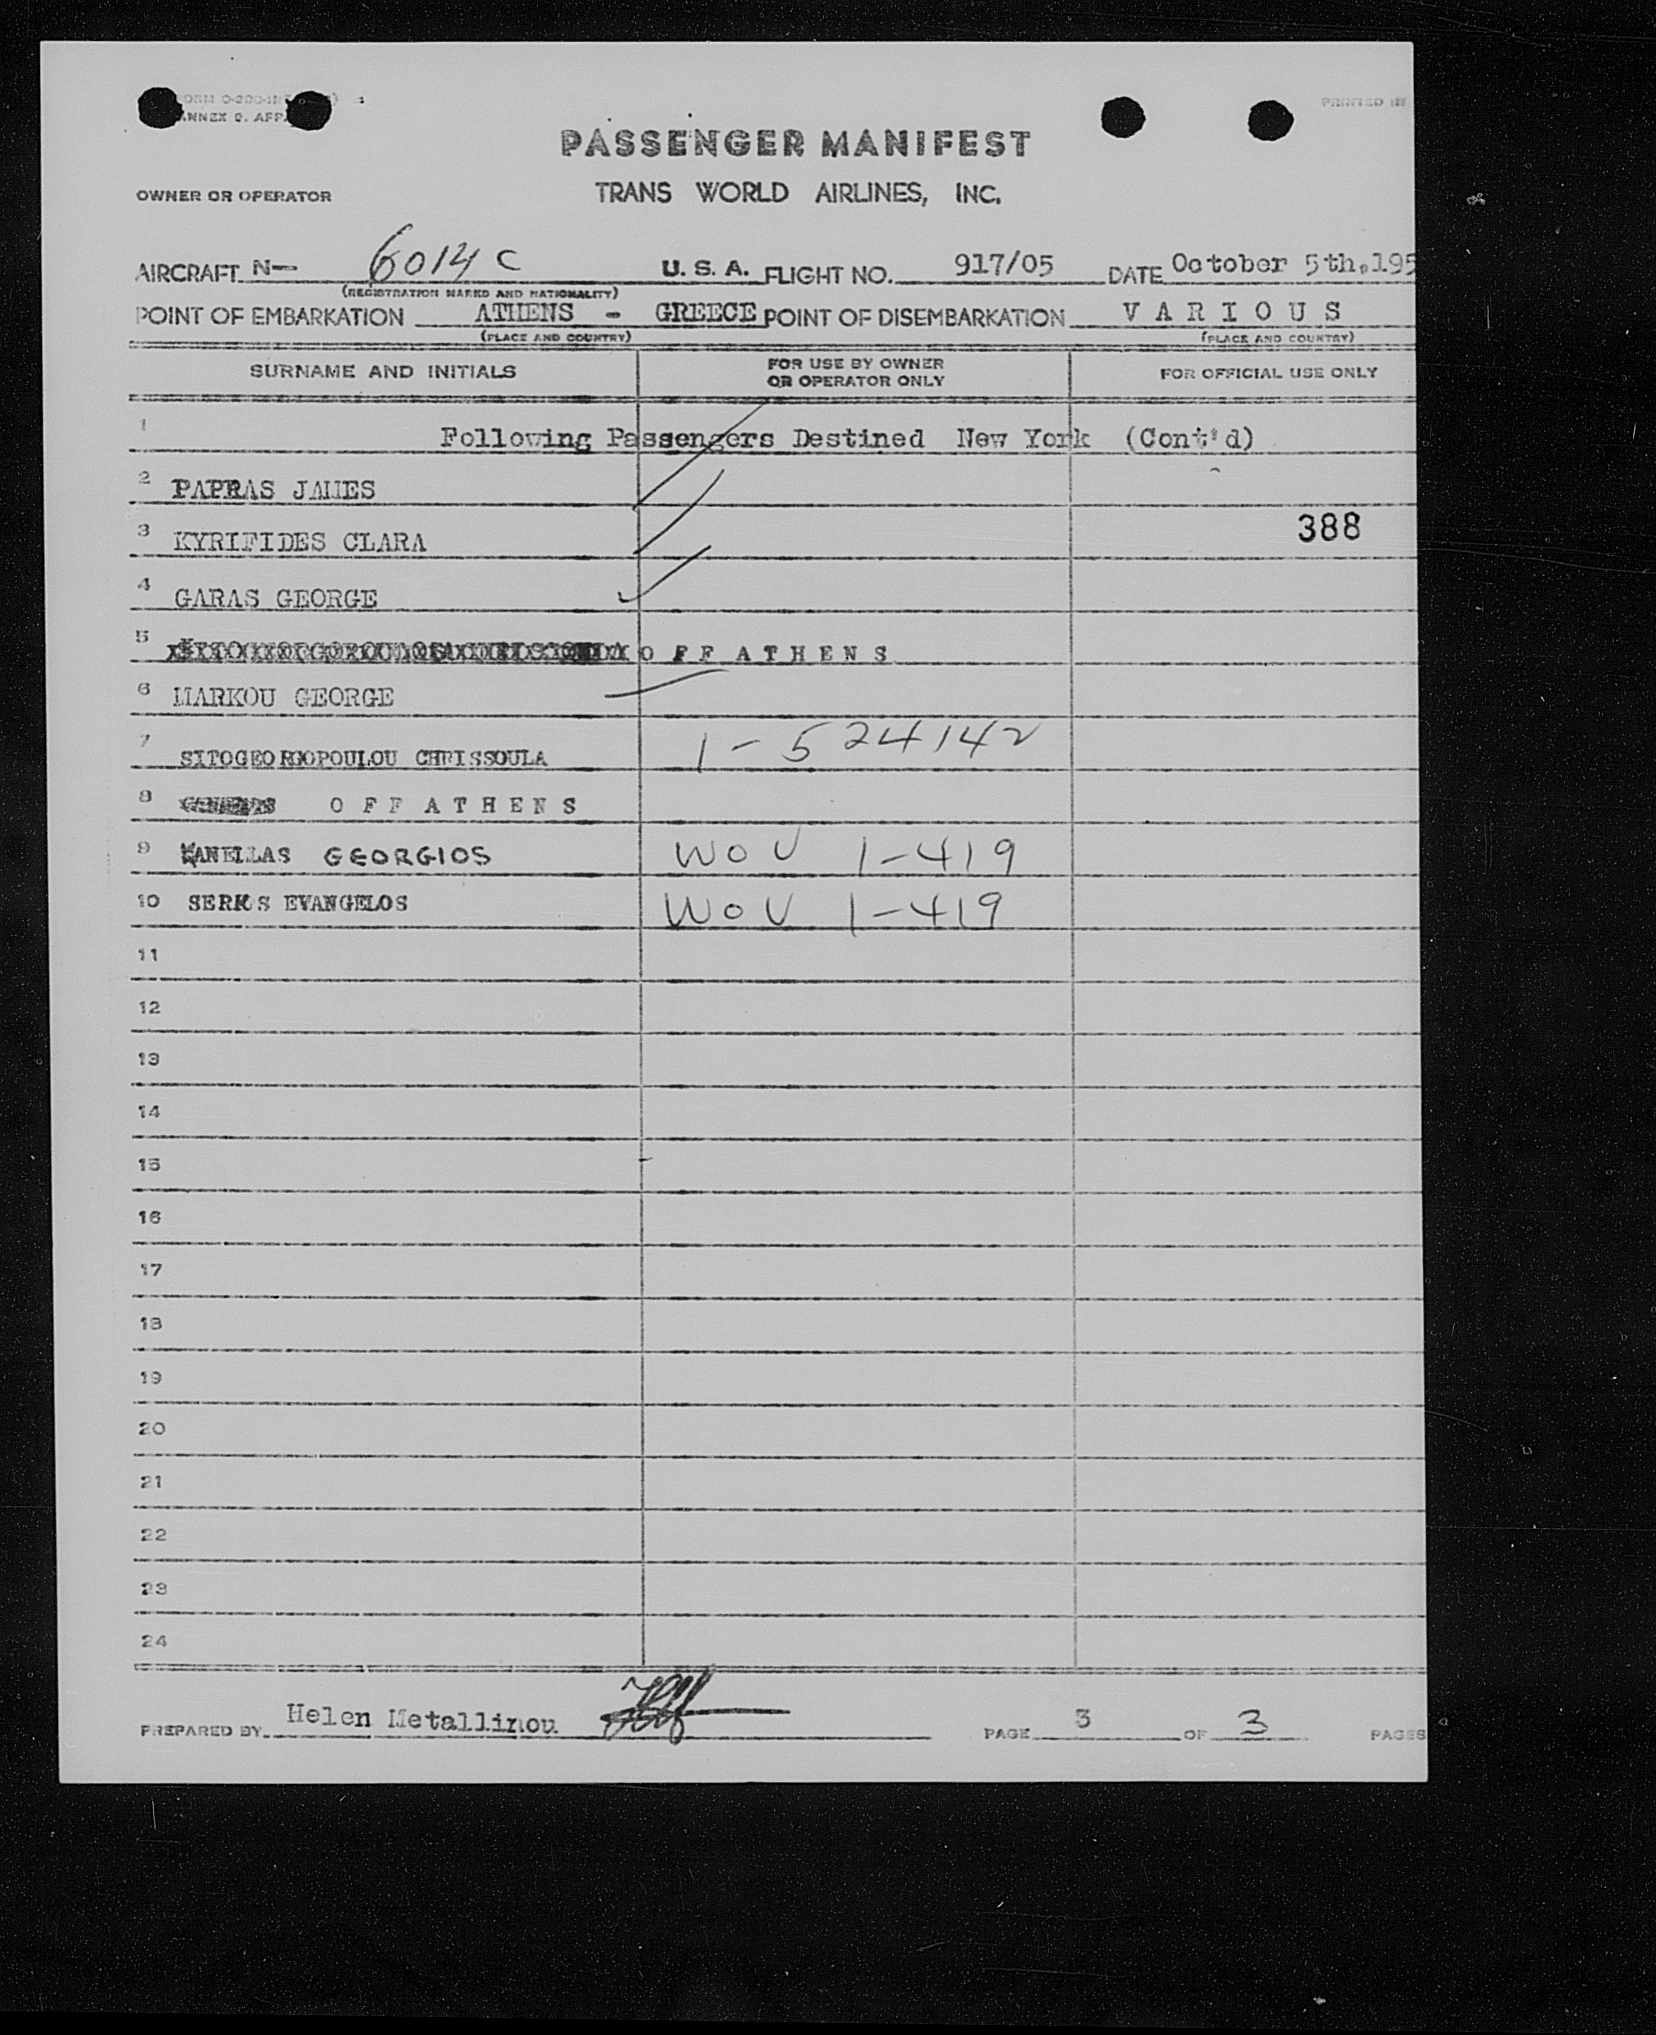 ANNEX 2. APP
PRINTED IN
PASSENGER MANIFEST
OWNER OR OPERATOR TRANS WORLD AIRLINES, INC.
AIRCRAFT N- 6014 C U. S. A. FLIGHT NO. 917/05 DATE October 5th.195
(REGISTRATION MARKS AND NATIONALITY)
POINT OF EMBARKATION ATHENS - GREECE POINT OF DISEMBARKATION V A R I O U S
(PLACE AND COUNTRY) (PLACE AND COUNTRY)
SURNAME AND INITIALS FOR USE BY OWNER OR OPERATOR ONLY FOR OFFICIAL USE ONLY
1 Following Passengers Destined New York (Cont'd)
2 PAPRAS JAMES
3 KYRIFIDES CLARA 388
4 GARAS GEORGE
5 O F F A T H E N S
6 MARKOU GEORGE
7 SITOGEORGOPOULOU CHRISSOULA 1-524142
8 O F F A T H E N S
9 KANELLAS GEORGIOS WOV 1-419
10 SERKS EVANGELOS WOV 1-419
11
12
13
14
15
16
17
18
19
20
21
22
23
24
PREPARED BY Helen Metallinou PAGE 3 OF 3 PAGES